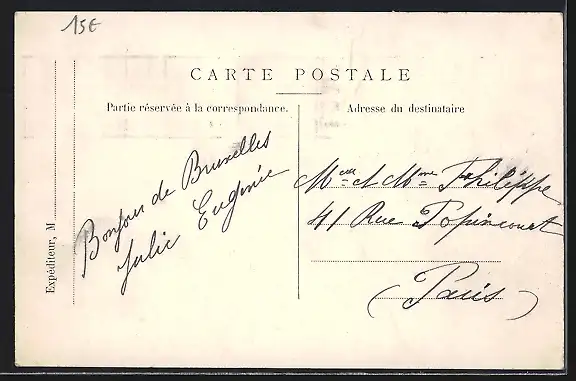 15€
CARTE POSTALE
Partie réservée à la correspondance.
Adresse du destinataire
Expéditeur, M
Bonjour de Bruxelles
Julie Eugénie
et Mme Philippe
41 Rue Popincourt
(Paris)